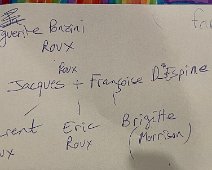 guerite Bazini
Roux
Roux
Jacques + Françoise D'Espine
rent Eric Brigitte
ux Roux (Morrison)